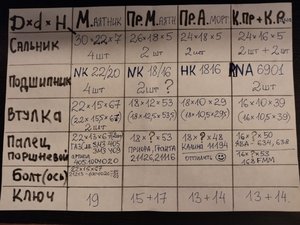 D×d×H.
М. маятник
Пр. М. маятн
Пр. А. морт
К. Пр + К. R
Сальник
30×22×7
4 шт
26×18×5
2 шт
24×18×5
2 шт
24×16×5
2 шт + 2 шт
Подшипник
NK 22/20
4 шт
NK 18/16
2 шт ?
HK 1816
RNA 6901
2 шт
Втулка
22×15×67
(22×15,5×67)
2 шт
18×12×53
(18×12,5×53,5)
18×10×29
(18×10,5×29)
16×10×39
(16×10,5×39)
Палец
поршневой
22×13×67
405.1004020
18×?×53
Приора, Гранта
21126, 21116
18×?×48
Калина 11194
отпилить
16×?×50
ЯВА - 634, 638
16×?×53
163FMM
Болт (ось)
Ключ
19
15 + 17
13 + 14
13 + 14